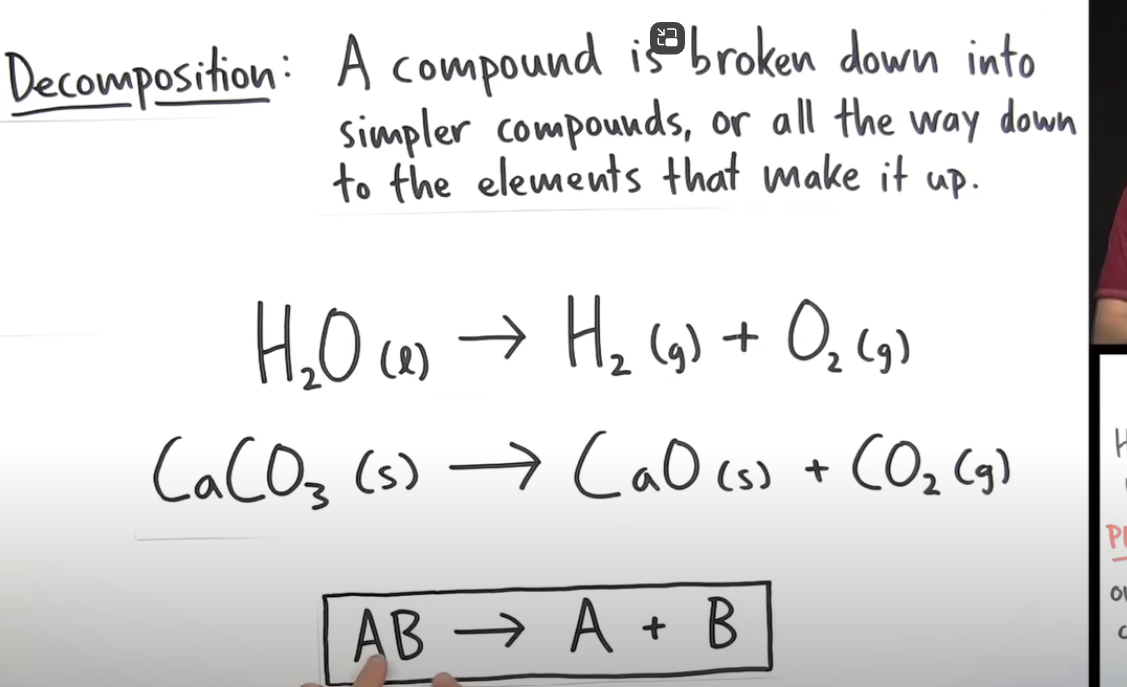 Decomposition: A compound is broken down into
simpler compounds, or all the way down
to the elements that make it up.
H₂O (l) → H₂ (g) + O₂ (g)
CaCO₃ (s) → CaO (s) + CO₂ (g)
AB → A + B